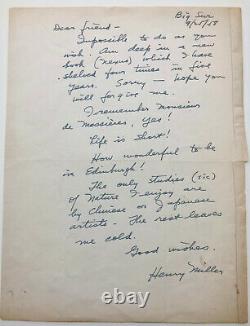 Big Sur
Dear friend –
Impossible to do as you
wish. Am deep in a new
book (Nexus) which I have
shelved four times in five
years. Sorry – hope you
will forgive me.
I remember Monsieur
de Mossières, Yes!
Life is short!
How wonderful to be
in Edinburgh!
The only studies (sic)
of Nature I enjoy are
by Chinese or Japanese
artists – The rest leaves
me cold.
Good wishes.
Henry Miller